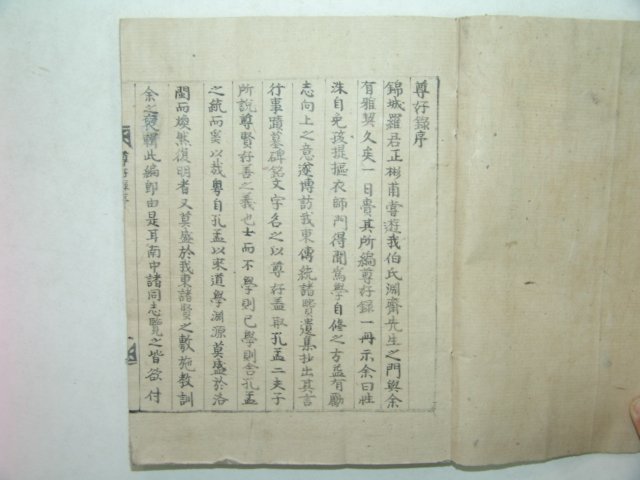 尊好錄序
錦城羅君正彬甫嘗遊我伯氏淵齋先生之門與余
有雅契久矣一日賫其所編尊好錄一冊示余曰甡
洙自免孩提摳衣師門得聞爲學自修之方益有勵
志向上之意遂博訪我東傳統諸賢遺集抄出其言
行事蹟墓碑銘文字名之以尊好盖取孔孟二夫子
所說尊賢好善之義也士而不學則已學則舍孔孟
之統而奚以哉粤自孔孟以來道學淵源莫盛於洛
閩而煥然復明者又莫盛於我東諸賢之敷施教訓
余之裒輯此編卽由是耳南中諸同志覽之皆欲付
尊好錄序